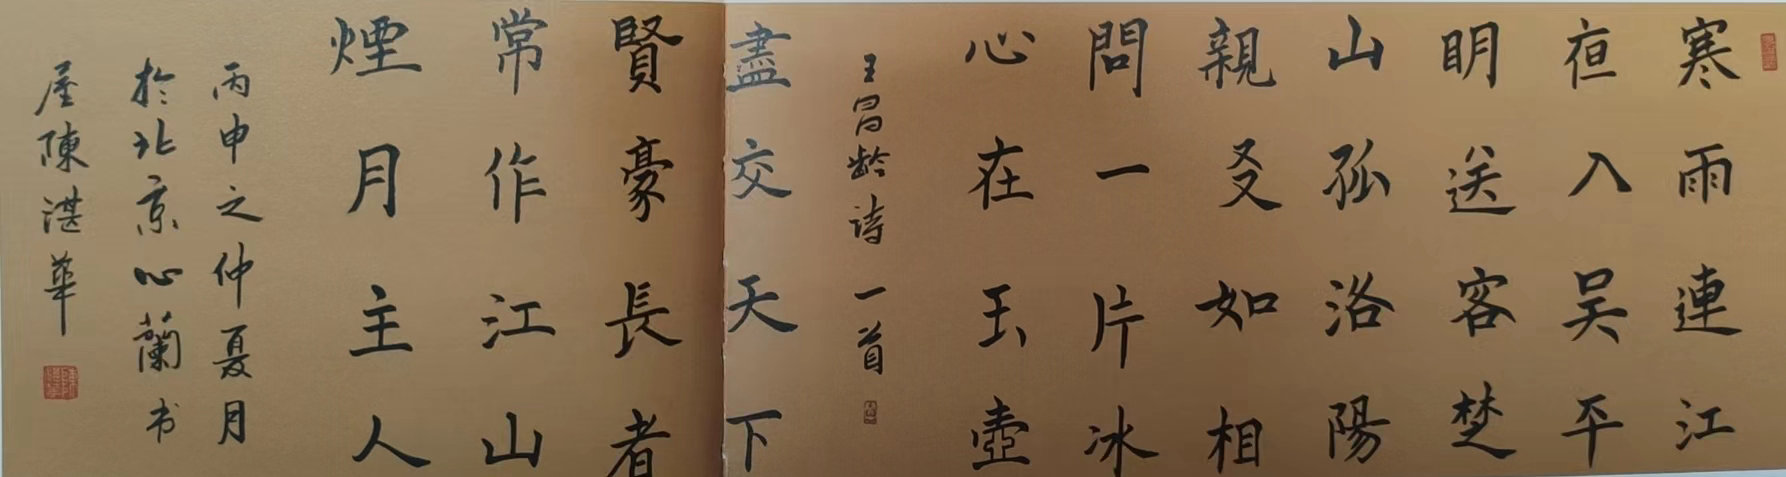 寒雨連江
亱入吴平
眀送客楚
山孤洛陽
親友如相
問一片冰
心在玉壺
王昌龄诗一首
盡交天下
賢豪長者
常作江山
煙月主人
丙申之仲夏月
於北京心蘭书
屋陳湛華